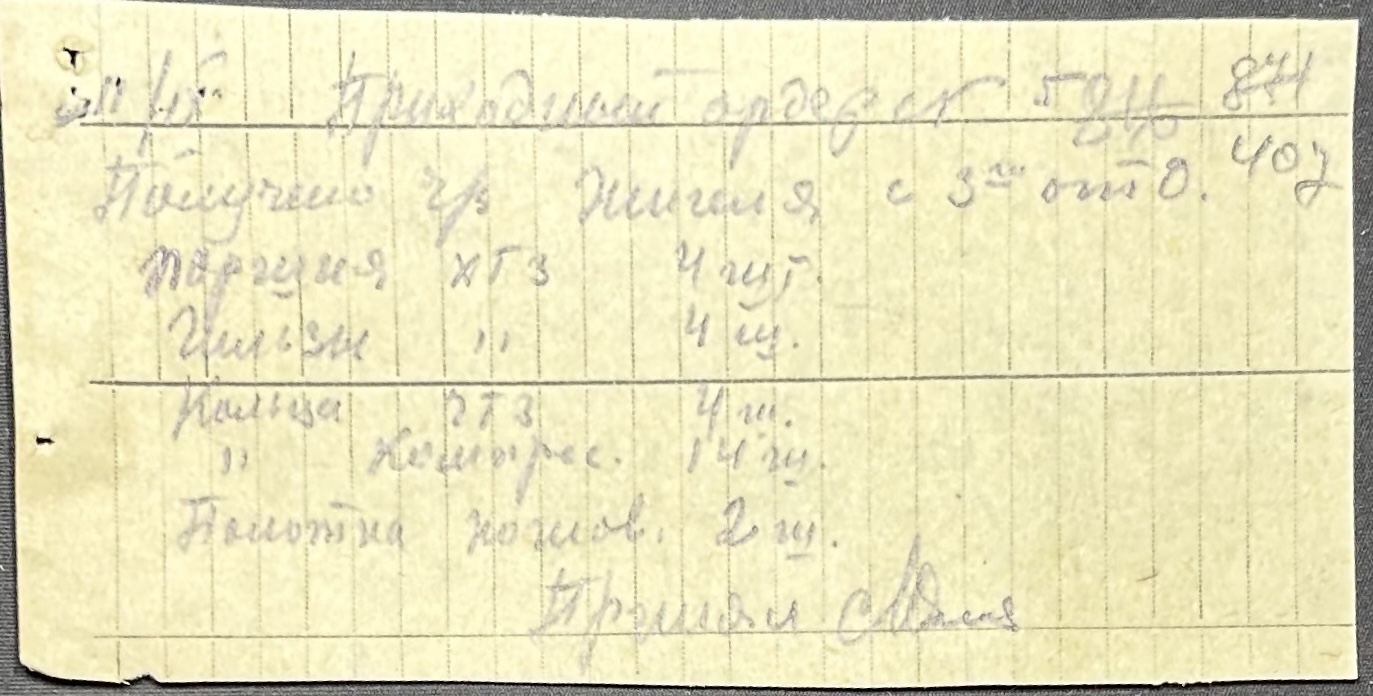 Приходный ордер № 5 871
Получено ч/з Жигеля с 3го отд. 407
Поршня ХТЗ 4 шт.
Гильзы " 4 ш.
Кольца ЧТЗ 4 ш.
" Компрес. 14 ш.
Полотна ножов. 2 ш.
Принял